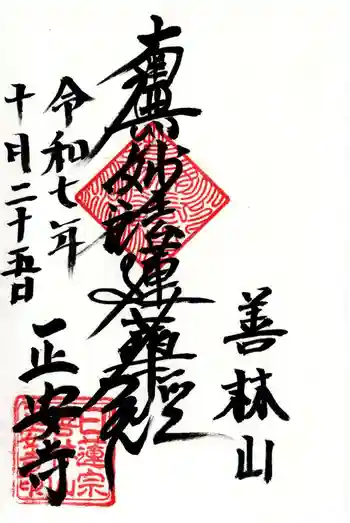 善林山
南無妙法蓮華經
令和七年
十月二十五日
正安寺
日蓮宗